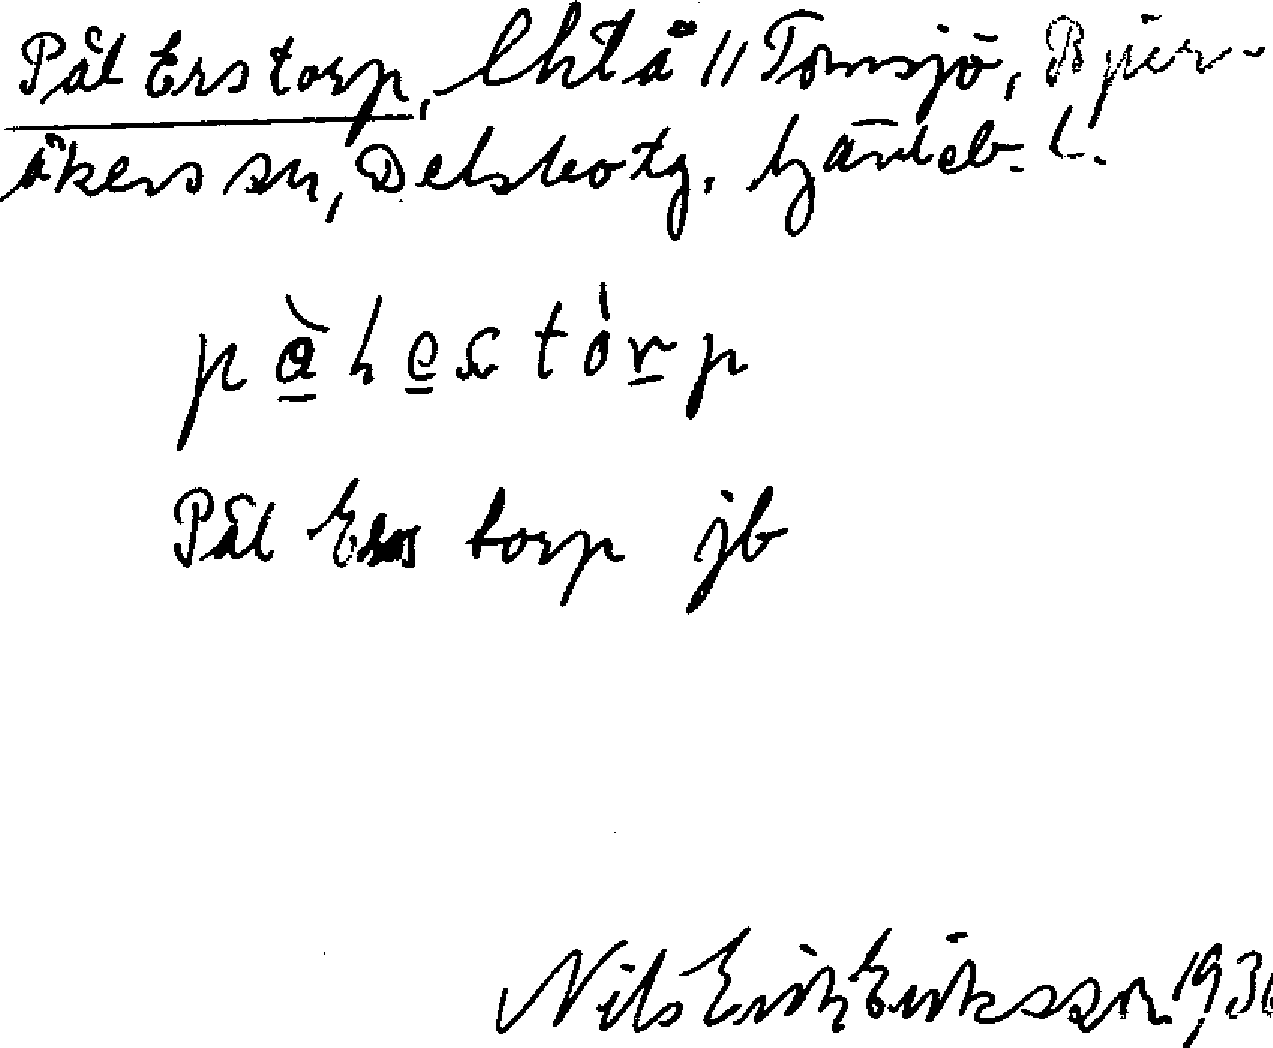 Pål Erstorp, lht å "Tomsjö, Bjur-
åkers sn, Delsbo tg. Gävleb. l.
pàlestórp
Pål Ers torp jb
Nils Erik Eriksson 193